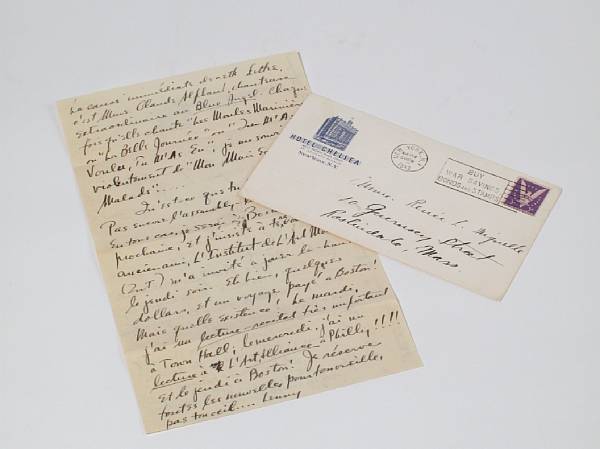 La cause immédiate de cette lettre,
c'est Mme Claude Alphand, chanteuse
extraordinaire au Blue Angel. Chaque
fois qu'elle chante "Les Moules Marinière
ou "La Belle Journée" ou "Tu M'As
Voulu, Tu M'As Eu", je me souv
violentement de "Mon Mari Es
Malade"....
Qu'est-ce que tu
Pas encore l'assembly
En tous cas, je serai à Bos
prochaine, et j'insiste à te v
ancien ami, L'Institut de l'Art Mo
(Int) m'a invité à jouer là-bas
le jeudi soir. Eh bien, quelques
dollars, et un voyage payé à Boston!
Mais quelle existence! Le mardi,
j'ai un lecture-recital très important
à Town Hall; le mercredi, j'ai un
lecture à L'Art Alliance à Philly!!!!
Et le jeudi à Boston! Je réserve
toutes les nouvelles pour ton oreille,
pas ton œil.... Lenny
HOTEL CHELSEA
New York, N.Y.
NEW YORK, N.Y.
1943
BUY
WAR SAVINGS
BONDS AND STAMPS
Mme. Renée L. Miquelle
10 Guernsey Street
Roslindale, Mass